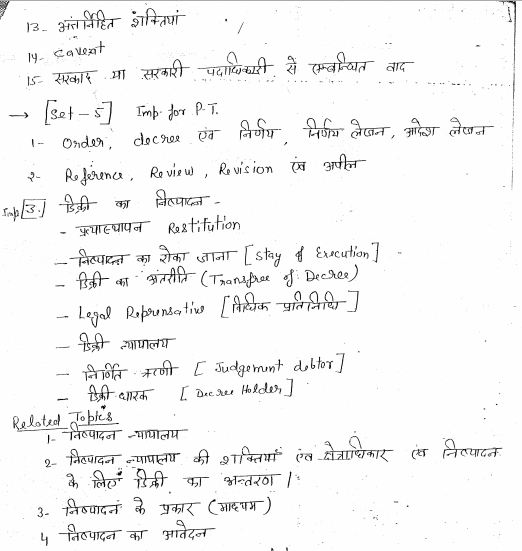 13- अंतर्निहित शक्तियां
14- Caveat
15- सरकार या सरकारी पदाधिकारी से सम्बन्धित वाद
→ [Set-5] Imp. for P.T.
1- Order, decree एवं निर्णय, निर्णय लेखन, आदेश लेखन
2- Reference, Review, Revision एवं अपील
Imp [3.] डिक्री का निष्पादन -
- प्रत्यास्थापन Restitution
- निष्पादन का रोका जाना [Stay of Execution]
- डिक्री का अंतरीति (Transfree of Decree)
- Legal Reprensative [विधिक प्रतिनिधि]
- डिक्री न्यायालय
- निर्णित ऋणी [Judgement debtor]
- डिक्री धारक [Decree Holder]
Related Topics
1- निष्पादन न्यायालय
2- निष्पादन न्यायालय की शक्तियां एवं क्षेत्राधिकार एवं निष्पादन
के लिए डिक्री का अन्तरण।
3- निष्पादन के प्रकार (माध्यम)
4 निष्पादन का आवेदन